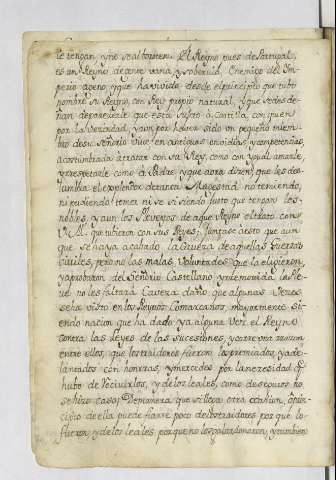 se tengan, y no se alboroten. El Reyno pues de Portugal,
es un Reyno de gente vana, y soberuia, Enemiga del Im-
perio ageno, y que ha viuido desde el principio que tubo
nombre su Reyno, con Rey propio natural, y que se desde-
ñan de parecerle que esta sujeto a Castilla, con quien
por la Vezindad, y aun por hauer sido un pequeño miem-
bro de su Señorio viue en antiguas envidias y competencias,
acostumbrada a tratar con su Rey, como con ygual amarle,
y respetarle como a Padre, y que aora dizen, que les des-
lumbra el resplendor de tanta Magestad no teniendo,
ni pudiendo temer ni se si siendo justo que tengan los
nobles, y aun los Siervos de aquel Reyno el trato con
V. M. que tubieron con sus Reyes; Juntase a esto que aun
que se haya acabado la Guerra de aquellas fuerzas
Ciuiles, pero no las malas Voluntades que la eligieron,
y aprobaron del Señorio Castellano, y rdemouida
que no les faltará Cauera daño que algunas Vezes
se ha visto en los Reynos Comarcanos, mayormente si-
endo nacion que ha dado ya alguna vez el Reyno
contra las leyes de las sucessiones, y corre una razon
entre ellos que los traidores fueron los premiados, y ade-
lantados con honrras, y mercedes por la necesidad q̃
hubo de reciuirlos, y de los leales, como de seguros no
se hizo caso; De manera que si llega otra ocasion, o prin-
cipio de ella puede fiarse poco de los traidores por que lo
fueron, y de los leales porque no los galardonaron, y tambien